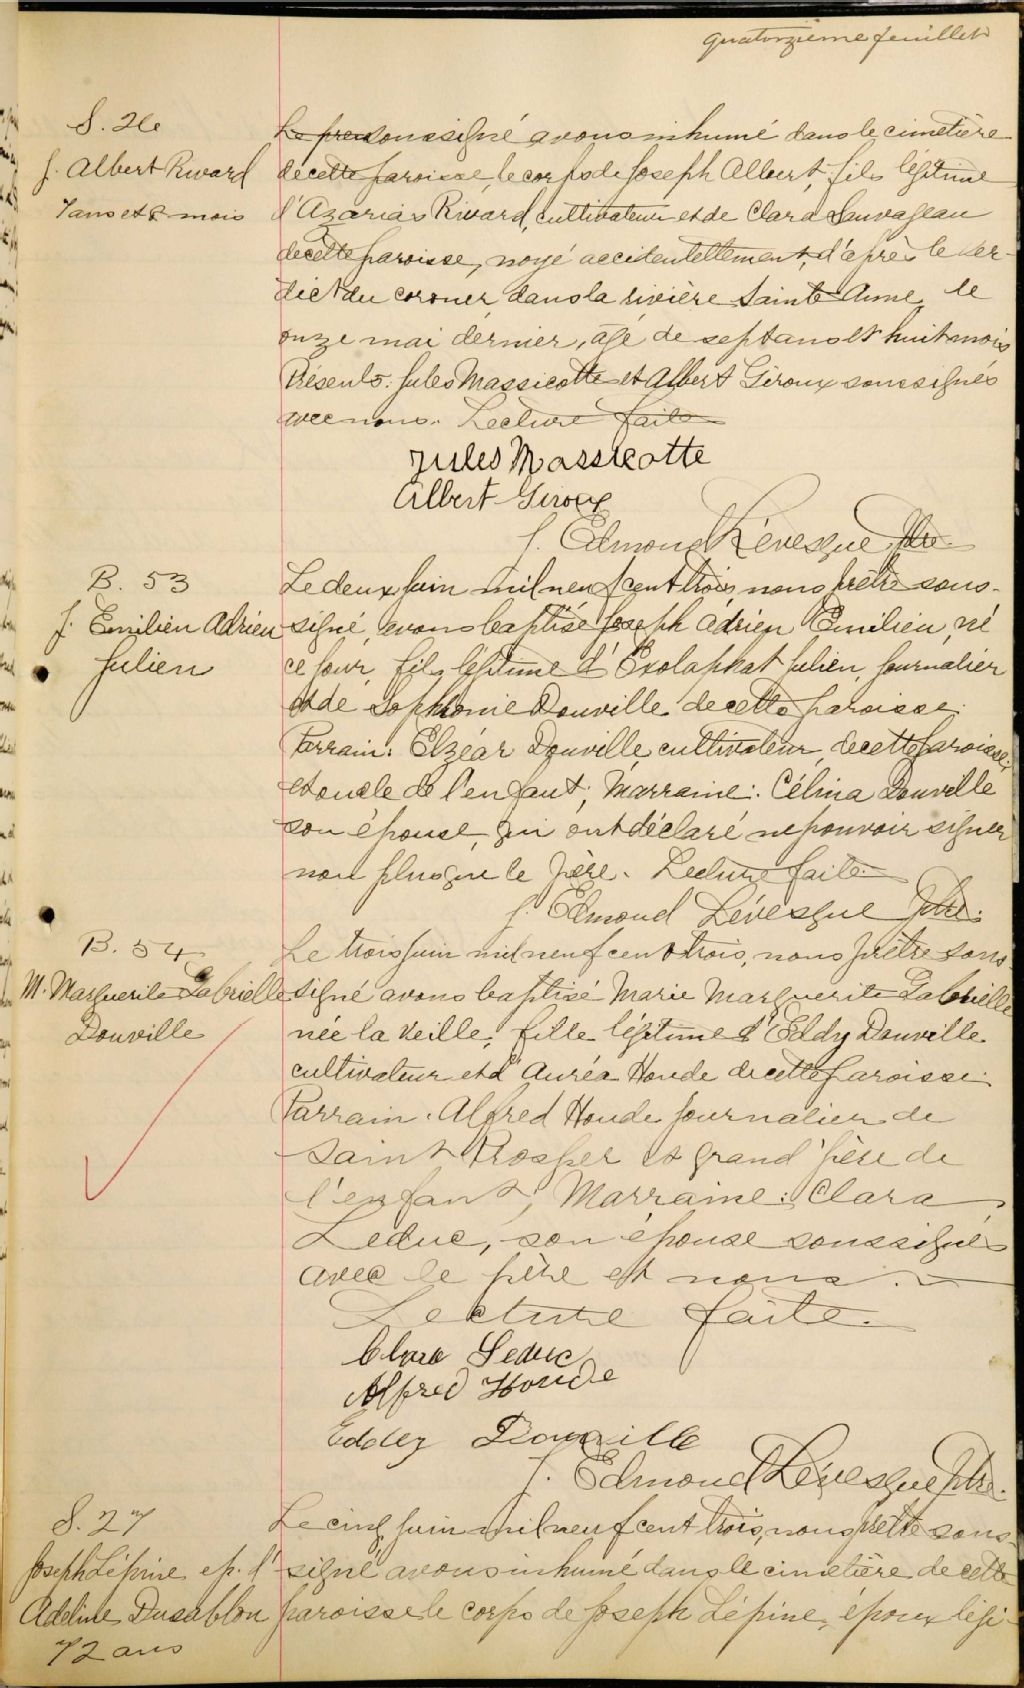 quatorzième feuillet
S. 26
J. Albert Rivard
7 ans et 8 mois
soussigné avons inhumé dans le cimetière
de cette paroisse, le corps de Joseph Albert, fils légitime
d'Azarias Rivard, cultivateur et de Clara Sauvageau
de cette paroisse, noyé accidentellement, d'après le ver-
dict du coroner, dans la rivière Sainte Anne, le
onze mai dernier, âgé de sept ans et huit mois
Présents: Jules Massicotte et Albert Giroux soussignés
avec nous. Lecture faite
Jules Massicotte
Albert Giroux
J. Edmond Lévesque Ptre.
B. 53
J. Emilien Adrien
Julien
Le deux juin mil neuf cent trois, nous prêtre sous-
signé, avons baptisé Joseph Adrien Emilien, né
ce jour, fils légitime d' Julien, journalier
et de Sophronie Douville de cette paroisse.
Parrain: Elzéar Douville, cultivateur, de cette paroisse;
et oncle de l'enfant; Marraine: Célina Douville
son épouse, qui ont déclaré ne pouvoir signer
non plus que le père. Lecture faite.
J. Edmond Lévesque Ptre.
B. 54
M. Marguerite Gabrielle
Douville
Le trois juin mil neuf cent trois, nous prêtre sous-
signé avons baptisé Marie Marguerite Gabrielle
née la veille, fille légitime d'Eddy Douville
cultivateur et d'Auréa Houde de cette paroisse.
Parrain. Alfred Houde journalier de
Saint Prosper et grand'père de
l'enfant; Marraine: Clara
Leduc, son épouse soussignés
avec le père et nous.
Lecture faite.
Clara Leduc
Alfred Houde
Eddey Douville
J. Edmond Lévesque Ptre.
S. 27
Joseph Lépine ep. d'
Adeline Dusablon
72 ans
Le cinq juin mil neuf cent trois, nous prêtre sous-
signé avons inhumé dans le cimetière de cette
paroisse le corps de Joseph Lépine, époux légi-